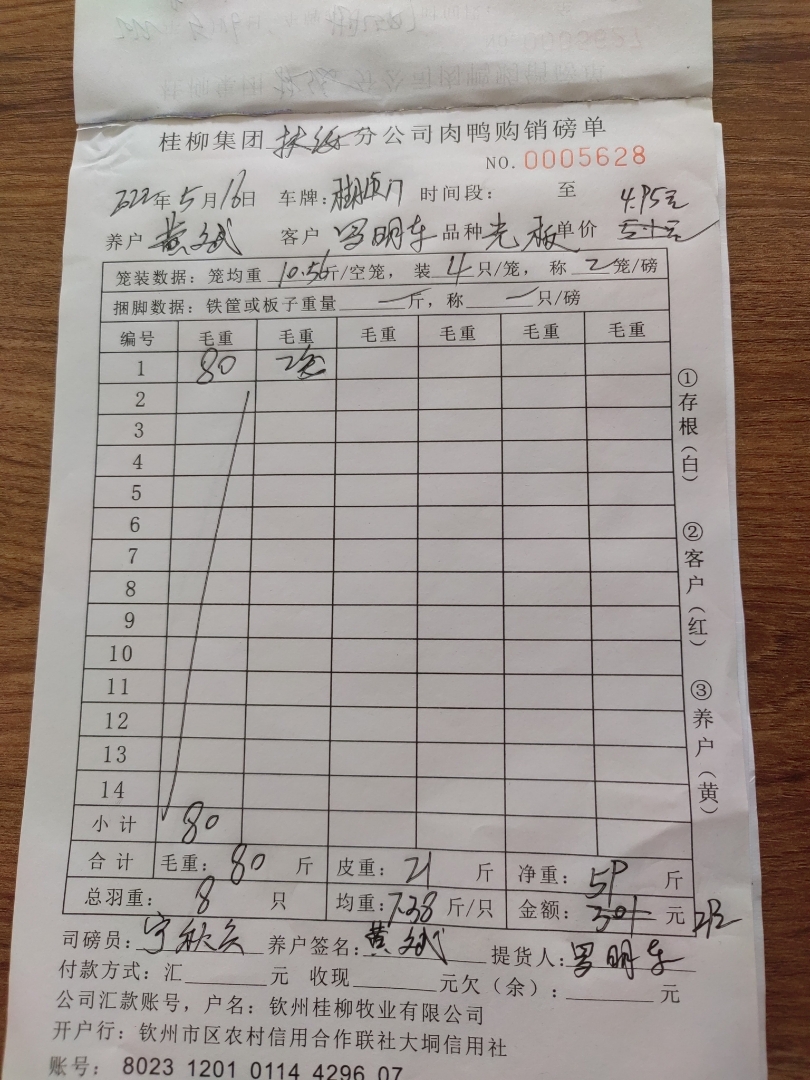 桂柳集团扶绥分公司肉鸭购销磅单
NO. 0005628
2022年5月16日 车牌: 时间段: 至
4.95元
养户 黄文斌 客户 罗明车 品种 光板 单价
笼装数据: 笼均重 10.56 斤/空笼, 装 4 只/笼, 称 2 笼/磅
捆脚数据: 铁筐或板子重量 — 斤, 称 — 只/磅
编号 毛重 毛重 毛重 毛重 毛重 毛重
1 80 2笼
2
3
4
5
6
7
8
9
10
11
12
13
14
小计 80
合计 毛重: 80 斤 皮重: 21 斤 净重: 59 斤
总羽重: 8 只 均重: 7.38 斤/只 金额: 301 元
司磅员: 养户签名: 黄文斌 提货人: 罗明车
付款方式: 汇 元 收现 元欠(余): 元
公司汇款账号, 户名: 钦州桂柳牧业有限公司
开户行: 钦州市区农村信用合作联社大垌信用社
账号: 8023 1201 0114 4296 07
①存根(白)
②客户(红)
③养户(黄)